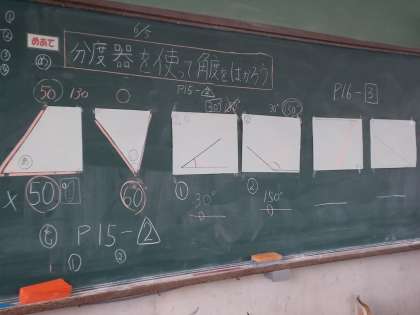 6/5
めあて
め 分度器を使って角度をはかろう
50 130
P15-2
30 150
30° 150
P16-3
あ
× 50°
60
① 30°
② 150°
も P15-2
① ②